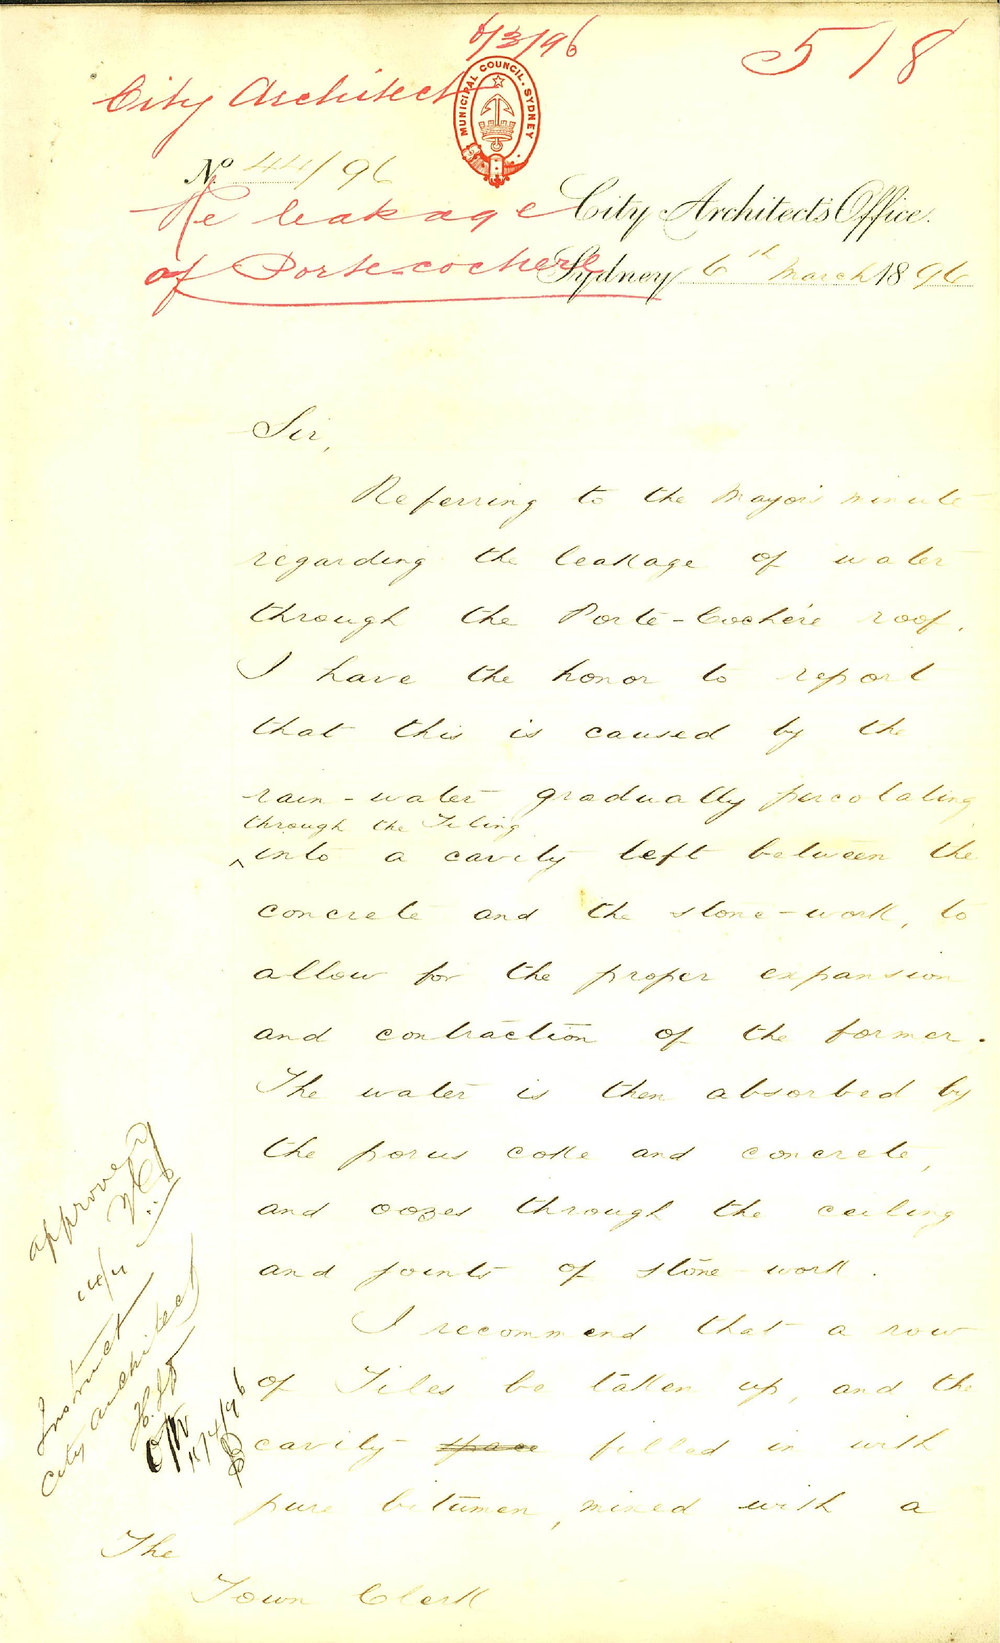 6/3/96
518
City Architect
MUNICIPAL COUNCIL · SYDNEY
No 44/96
Re leakage
City Architect's Office.
of Porte-cochere
Sydney 6th March 1896
Sir,
Referring to the Mayor's minute
regarding the leakage of water
through the Porte-Cochère roof.
I have the honor to report
that this is caused by the
rain-water gradually percolating
through the Tiling
^ into a cavity left between the
concrete and the stone-work, to
allow for the proper expansion
and contraction of the former.
The water is then absorbed by
the porus coke and concrete,
and oozes through the ceiling
and joints of stone-work.
I recommend that a row
of Tiles be taken up, and the
cavity space filled in with
pure bitumen, mixed with a
The
Town Clerk
approved
Instruct
City Architect
11/4/96